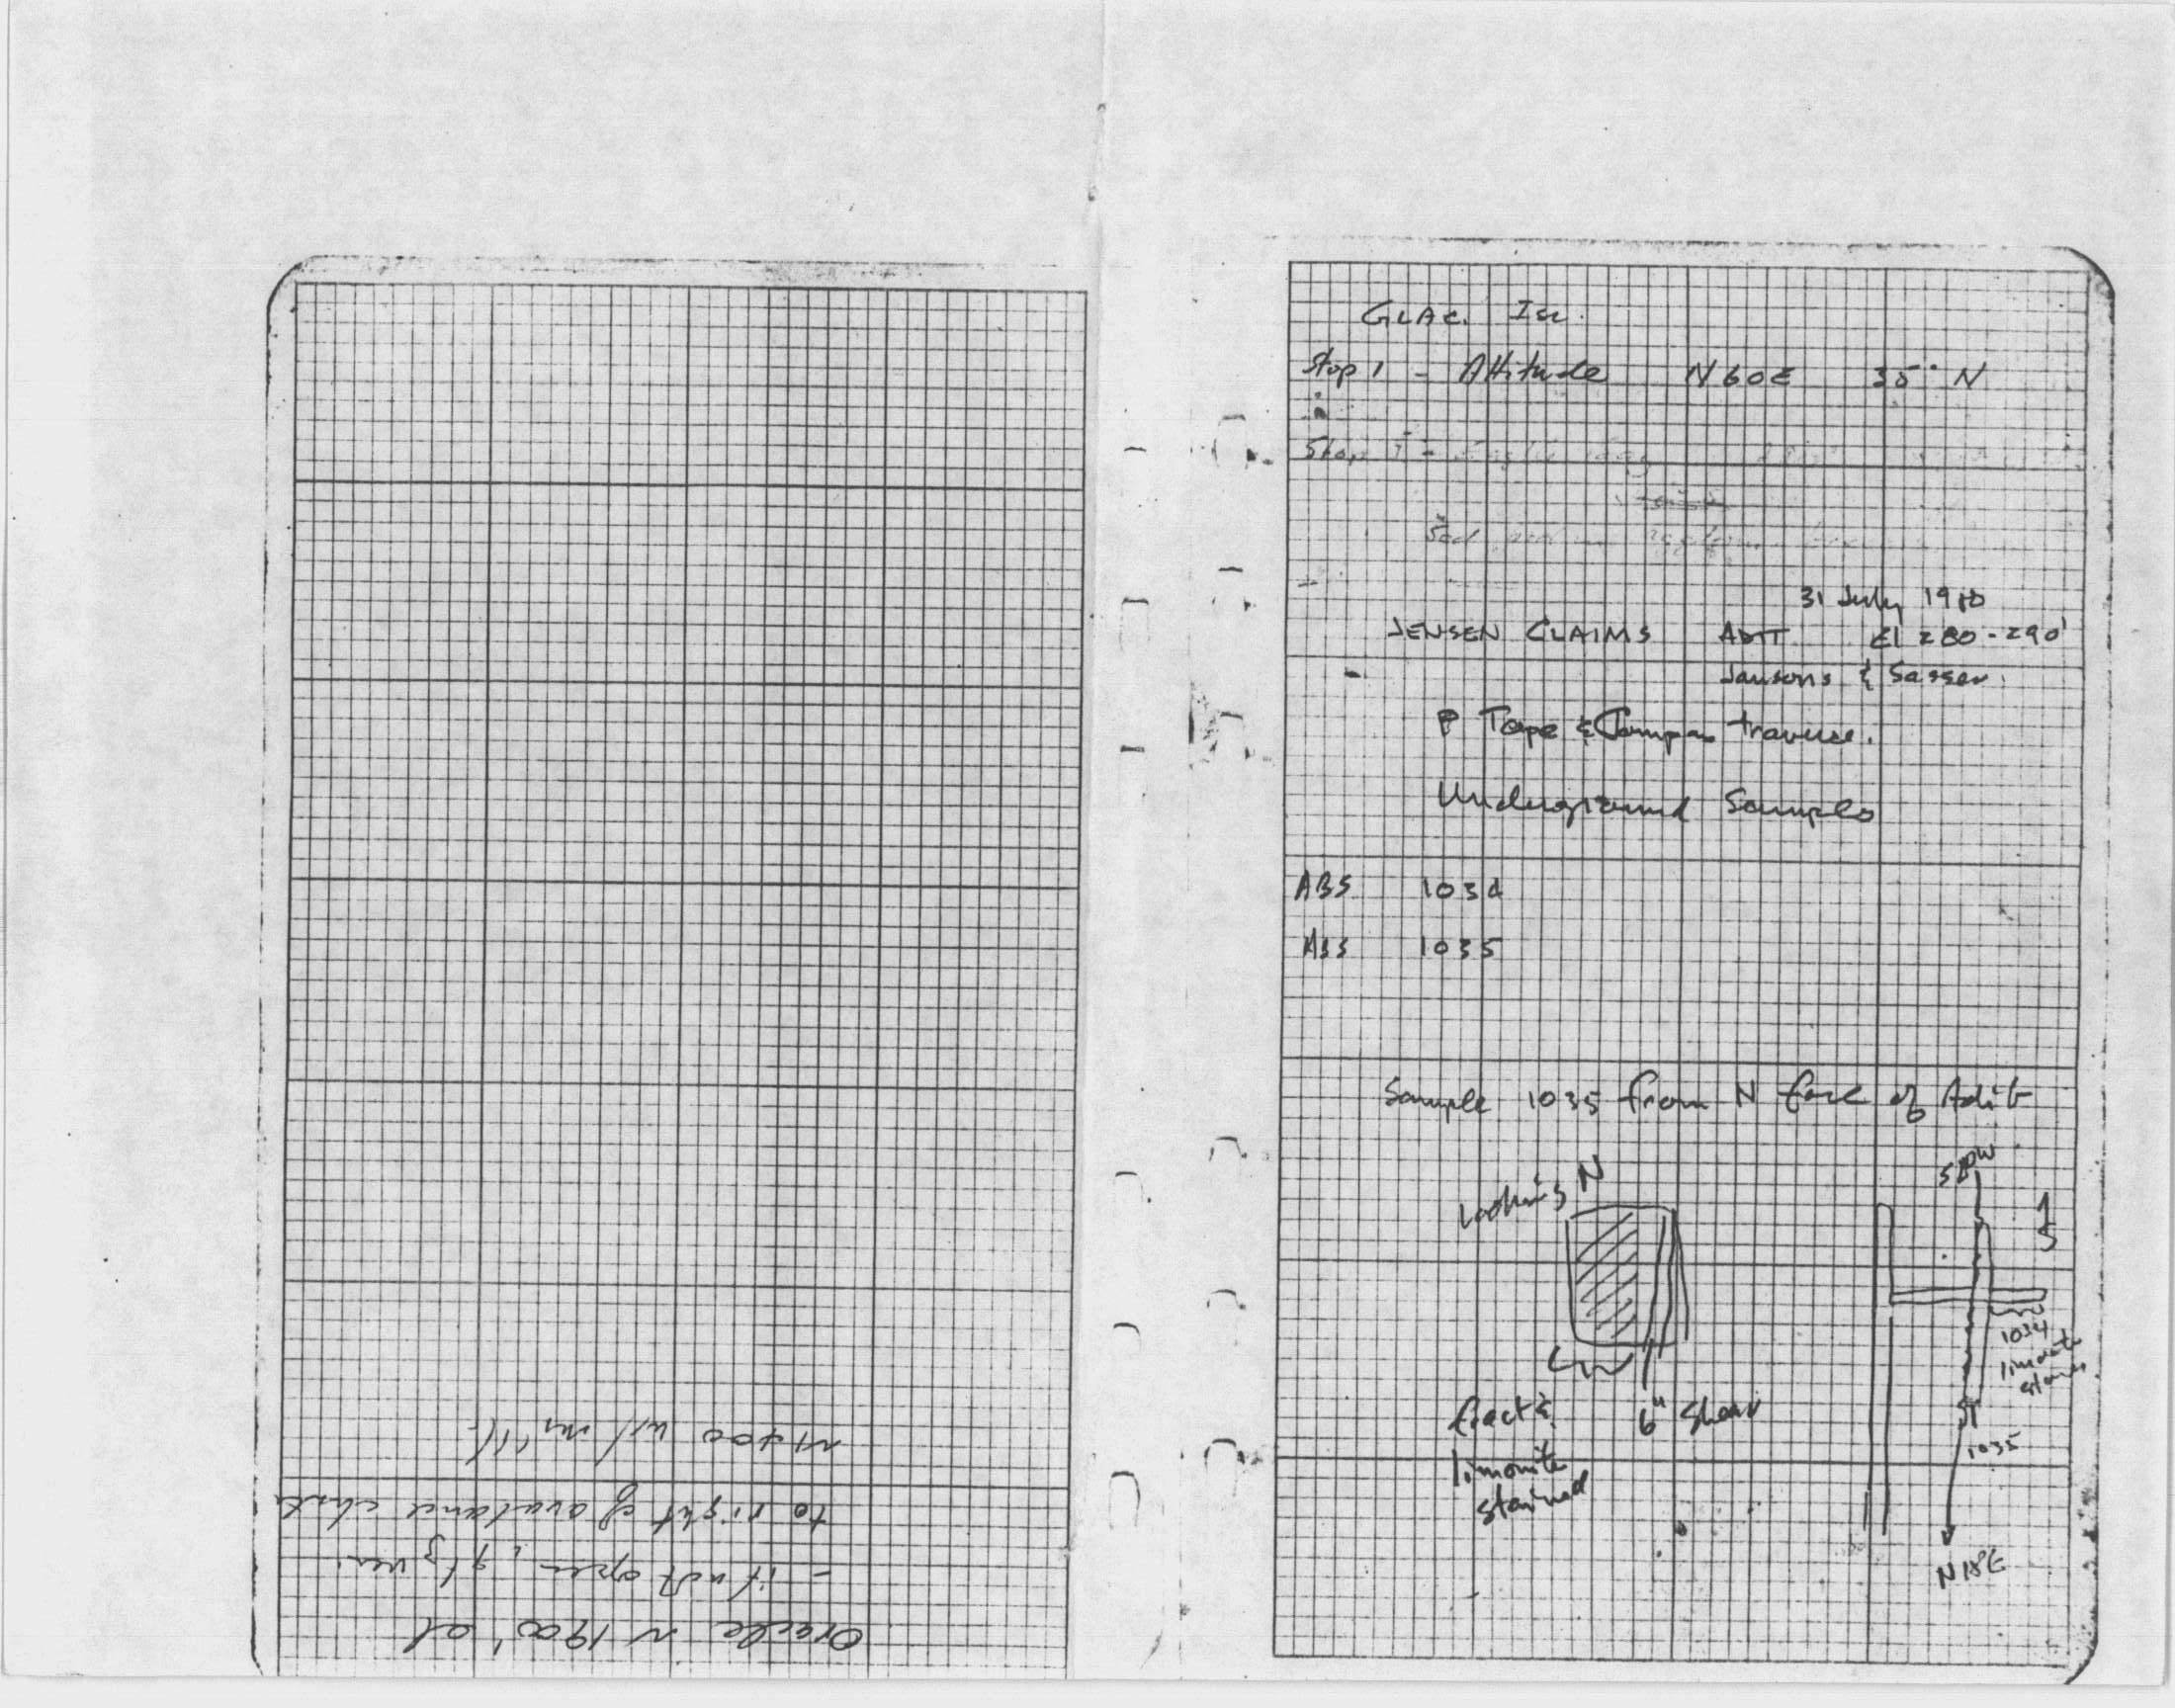 Oracle ~ 1900' el
- if not open, qtz vein
to right of avalanche chute
~1400 w/ mill
GLAC. ISL.
Stop 1 - Attitude N60E 35° N
Stop 1 -
Sed
31 July 1980
JENSEN CLAIMS ADIT El 280-290'
Jansons & Sasser
P Tape & Compass traverse.
Underground Samples
ABS 1034
ABS 1035
Sample 1035 from N face of Adit
Looking N
fract &
limonite
stained
6" Shear
1034
limonite
stained
1035
N18E